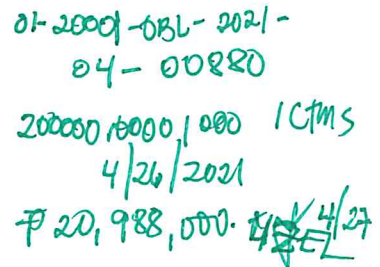 01-20001-OBL-2021-
04-00880
200000,0000,000 ICTMS
4/26/2021
₱ 20,988,000. 4/27